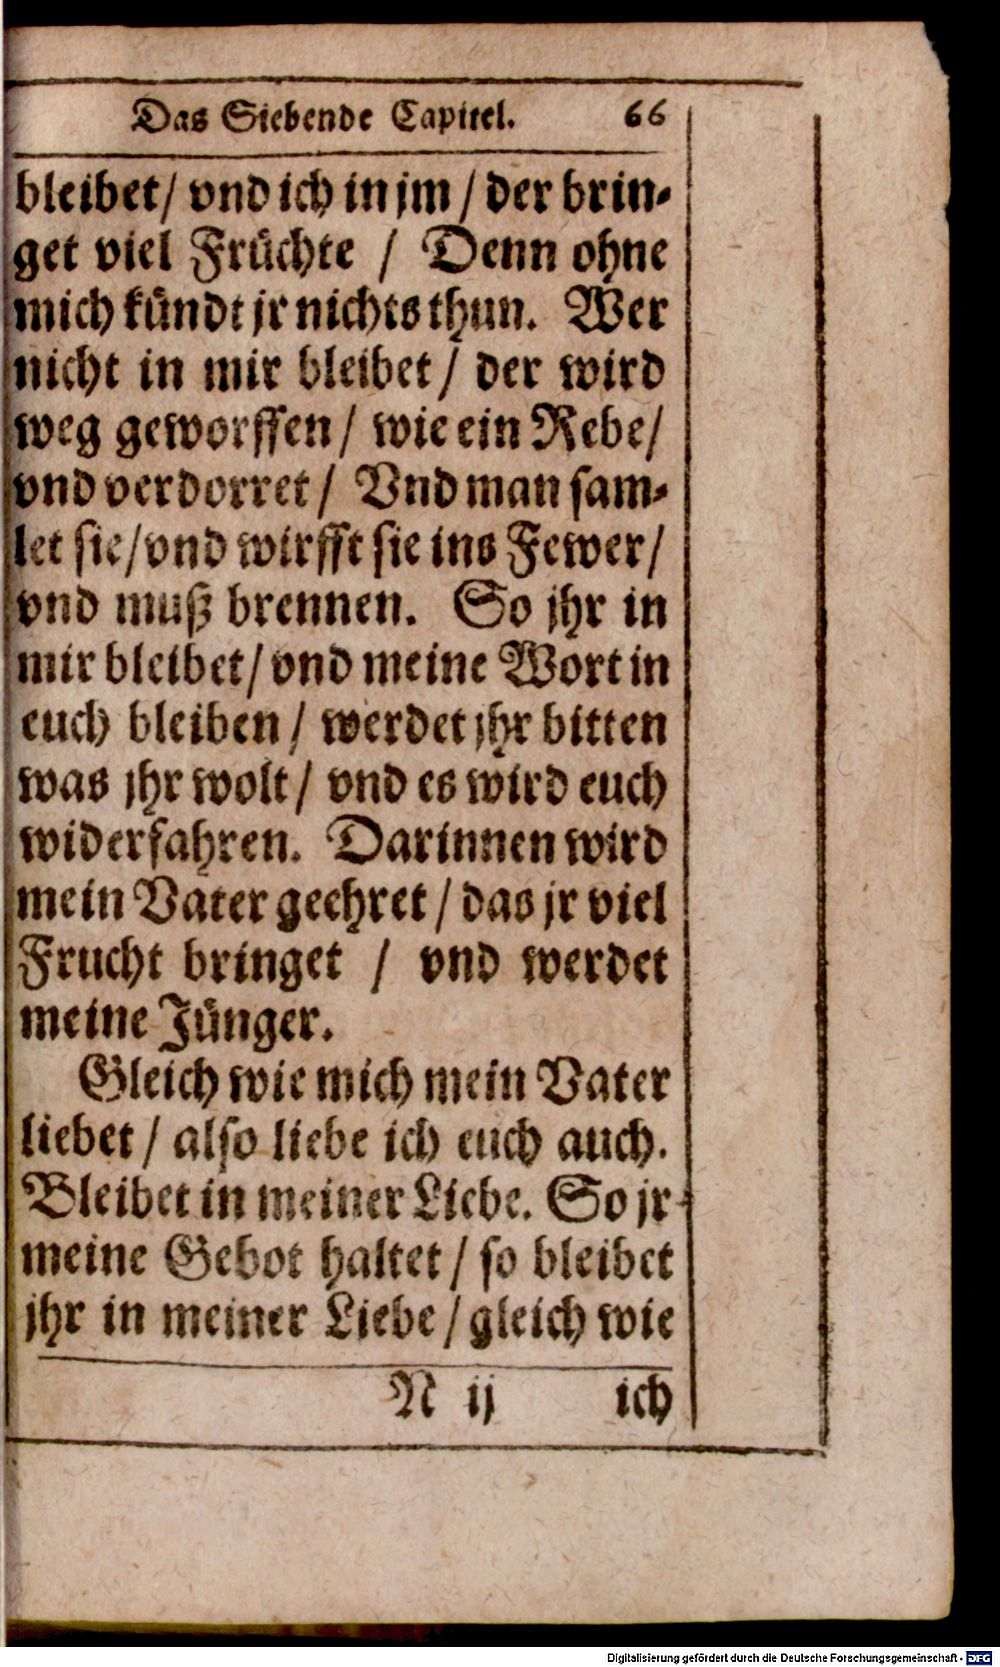 Das Siebende Capitel. 66
bleibet/ vnd ich in jm / der brin-
get viel Früchte / Denn ohne
mich kündt jr nichts thun. Wer
nicht in mir bleibet / der wird
weg geworffen / wie ein Rebe/
vnd verdorret / Vnd man sam-
let sie/vnd wirfft sie ins Fewer/
vnd muß brennen. So jhr in
mir bleibet/ vnd meine Wort in
euch bleiben / werdet jhr bitten
was jhr wolt / vnd es wird euch
widerfahren. Darinnen wird
mein Vater geehret / das jr viel
Frucht bringet / vnd werdet
meine Jünger.
Gleich wie mich mein Vater
liebet / also liebe ich euch auch.
Bleibet in meiner Liebe. So jr
meine Gebot haltet / so bleibet
jhr in meiner Liebe / gleich wie
N ij ich
Digitalisierung gefördert durch die Deutsche Forschungsgemeinschaft - DFG